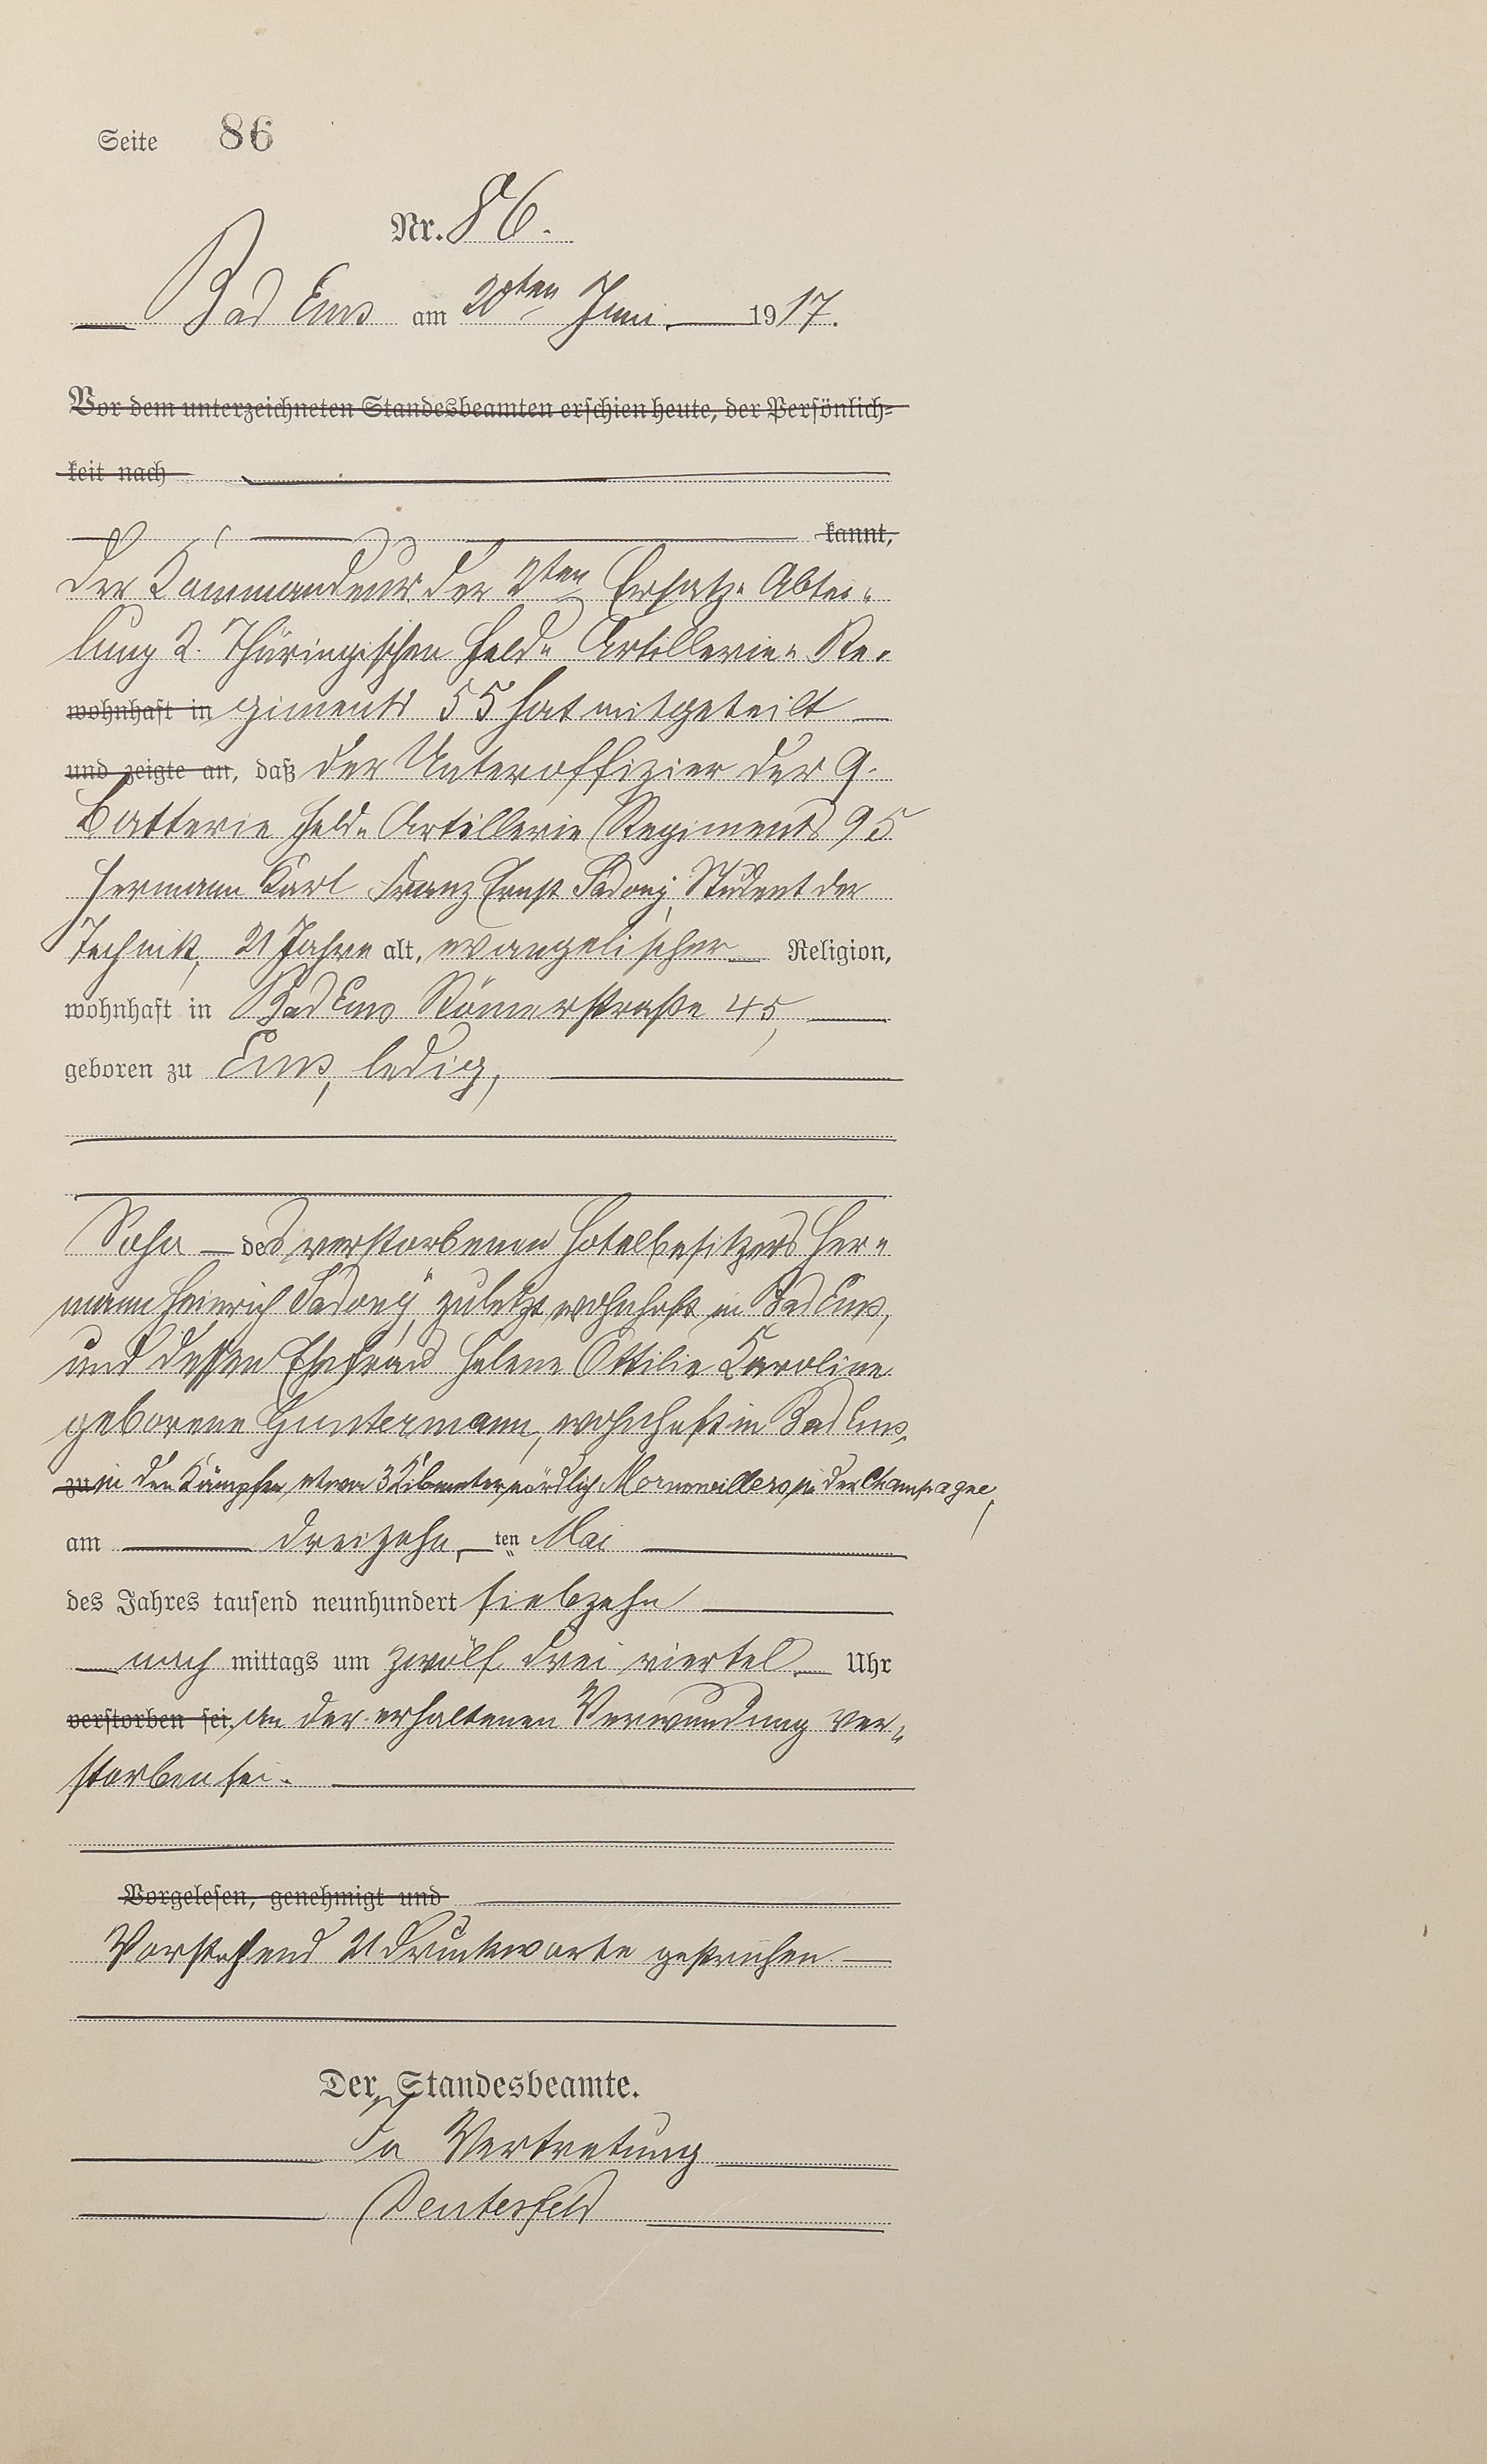 Seite 86
Nr. 86.
Bad Ems am 20ten Juni 1917.
Vor dem unterzeichneten Standesbeamten erschien heute, der Persönlich-
keit nach
kannt,
Der Kommandeur der 2ten Ersatz- Abtei-
lung 2. Thüringischen Feld- Artillerie- Re-
wohnhaft in giments 55 hat mitgeteilt
und zeigte an, daß der Unteroffizier der 9.
Batterie Feld- Artillerie Regiments 95
Hermann Karl Franz Ernst Sadony, Student der
Technik, 21 Jahre alt, evangelischer Religion,
wohnhaft in Bad Ems Römerstraße 45,
geboren zu Ems, ledig,
Sohn des verstorbenen Hotelbesitzers Her-
mann Heinrich Sadony, zuletzt wohnhaft in Bad Ems,
und dessen Ehefrau Helene Ottilie Karoline
geborene Guntermann, wohnhaft in Bad Ems,
zu in den Kämpfen, etwa 3 Kilometer nördlich in der Champagne,
am dreizehn ten Mai
des Jahres tausend neunhundert siebzehn
nach mittags um zwölf drei viertel Uhr
verstorben sei, an der erhaltenen Verwundung ver-
storben sei.
Vorgelesen, genehmigt und
Vorstehend 21 Druckworte gestrichen.
Der Standesbeamte.
In Vertretung